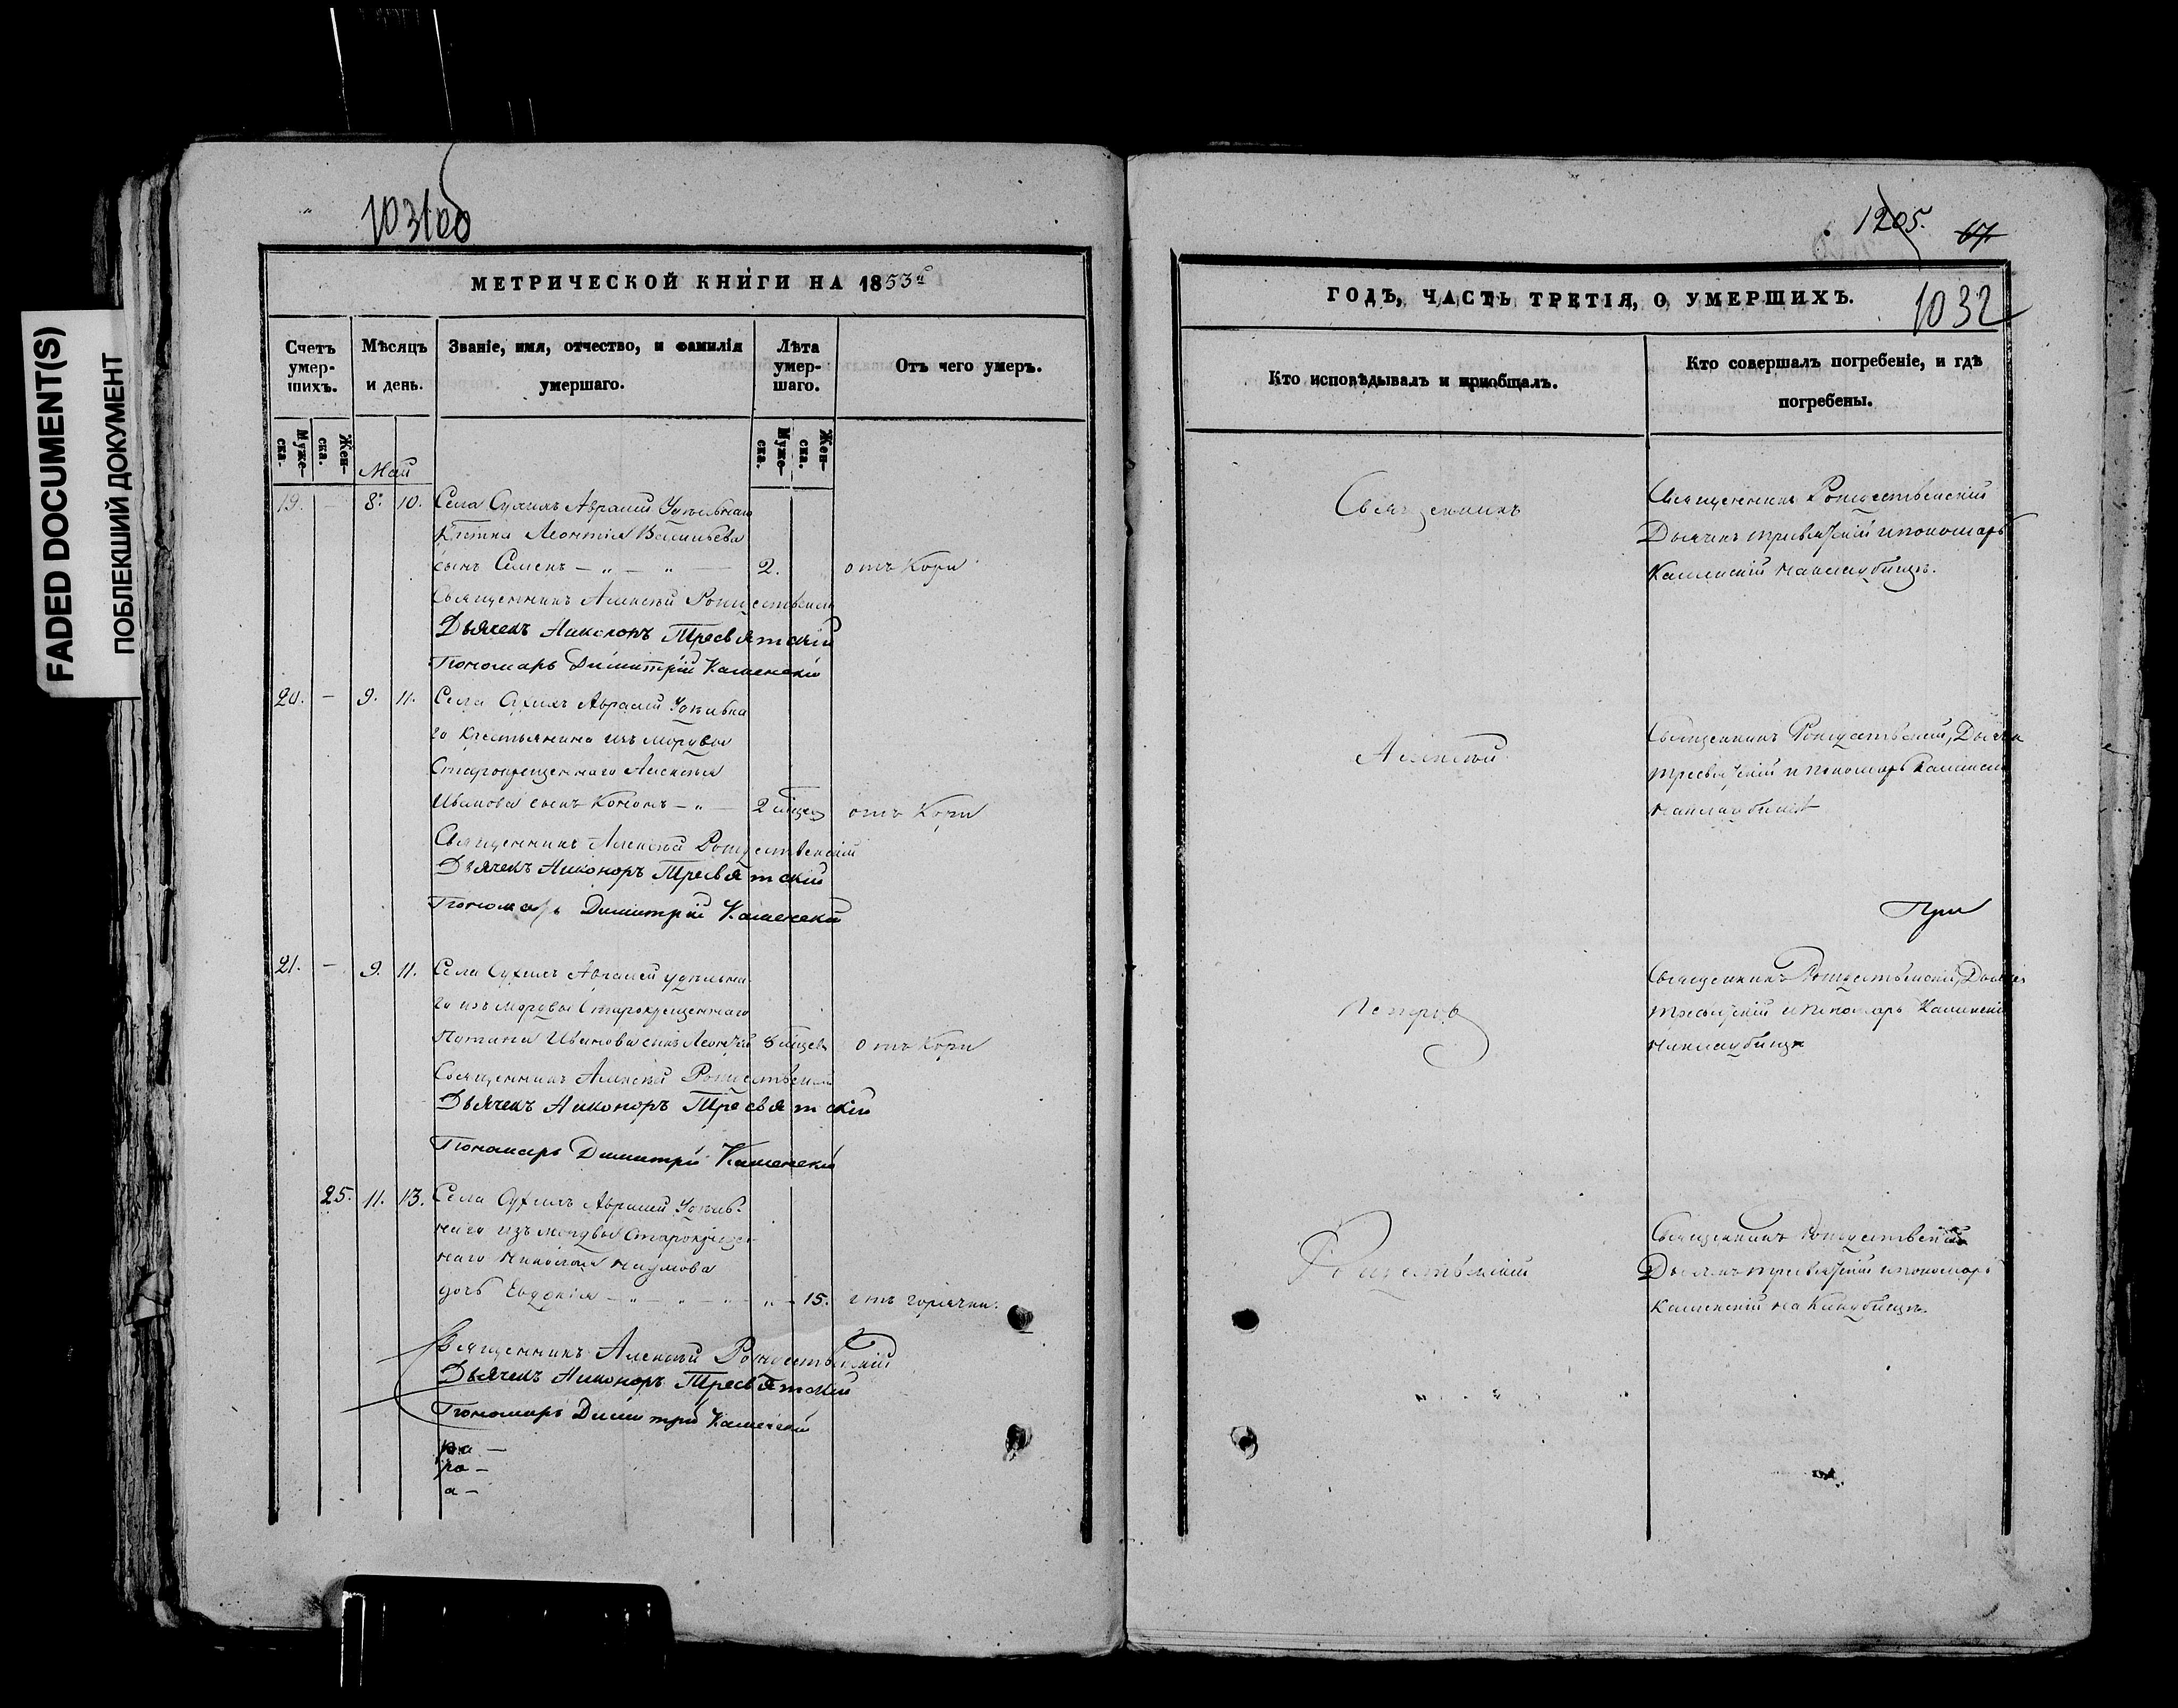 FADED DOCUMENT(S)
ПОБЛЕКШИЙ ДОКУМЕНТ
МЕТРИЧЕСКОЙ КНИГИ НА 1853й
Счетъ умер-шихъ.
Мѣсяцъ и день.
Званіе, имя, отчество, и фамилія умершаго.
Лѣта умер-шаго.
Отъ чего умеръ.
Муже-ска.
Жен-ска.
Муже-ска.
Жен-ска.
Май
19. — 8. 10. Села Сухихъ Авраліи Удѣльнаго
Леонтія Васильева
сынъ Семенъ — „ — „ — 2. отъ Кори
Священникъ Алексѣй Рождественскій
Дьячекъ Никоноръ Тресвятскій
Пономарь Димитрій Каменскій
20. — 9. 11. Села Сухихъ Авралій Удѣльна
го Крестьянина изъ мордвы
Старокрещеннаго Алексѣя
Иванова сынъ Кононъ — „ — 2 отъ Кори
Священникъ Алексѣй Рождественскій
Дьячекъ Никоноръ Тресвятскій
Пономарь Димитрій Каменскій
21. — 9. 11. Села Сухихъ Авралей удѣльна
го изъ мордвы Старокрещеннаго
Иванова сынъ 8 отъ Кори
Священникъ Алексѣй Рождественскій
Дьячекъ Никоноръ Тресвятскій
Пономарь Димитрій Каменскій
25. 11. 13. Села Сухихъ Авралій Удѣль-
наго изъ мордвы Старокреще-
наго Николая Наумова
дочь Евдокія — „ — „ — „ — „ — 15. отъ горячки.
Священникъ Алексѣй Рождественскій
Дьячекъ Никоноръ Тресвятскій
Пономарь Димитрій Каменскій
ра —
а —
1205.
67.
ГОДЪ, ЧАСТЬ ТРЕТІЯ, О УМЕРШИХЪ.
1032
Кто исповѣдывалъ и приобщалъ.
Кто совершалъ погребеніе, и гдѣ погребены.
Священникъ
Священникъ Рождественскій
Дьячекъ Тресвятскій и пономарь
Каменскій на кладбищѣ.
Алексѣй
Священникъ Рождественскій, Дьячекъ
Тресвятскій и пономарь Каменскій
на кладбищѣ
При
Петровъ
Священникъ Рождественскій, Дьячекъ
Тресвятскій и пономарь Каменскій
на кладбищѣ
Рождественскій
Священникъ Рождественскій
Дьячекъ Тресвятскій и пономарь
Каменскій на кладбищѣ.